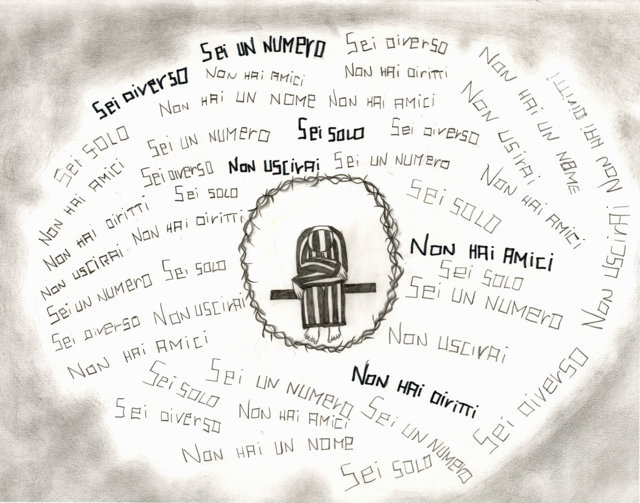 Sei UN NUMERO
Sei DIVERSO
Sei DIVERSO
NON HAI AMICI
NON HAI DIRITTI
NON HAI UN NOME
NON HAI AMICI
NON HAI UN NOME
NON HAI DIRITTI
Sei SOLO
Sei UN NUMERO
Sei SOLO
Sei DIVERSO
NON USCIRAI
NON HAI AMICI
Sei DIVERSO
NON USCIRAI
Sei UN NUMERO
NON HAI AMICI
Sei SOLO
Sei SOLO
NON HAI DIRITTI
NON HAI DIRITTI
NON USCIRAI
NON HAI AMICI
NON USCIRAI
Sei SOLO
Sei SOLO
Sei UN NUMERO
Sei UN NUMERO
Sei DIVERSO
NON USCIRAI
NON HAI AMICI
NON USCIRAI
Sei SOLO
Sei UN NUMERO
NON HAI DIRITTI
Sei DIVERSO
Sei DIVERSO
NON HAI AMICI
Sei UN NUMERO
NON HAI UN NOME
Sei SOLO